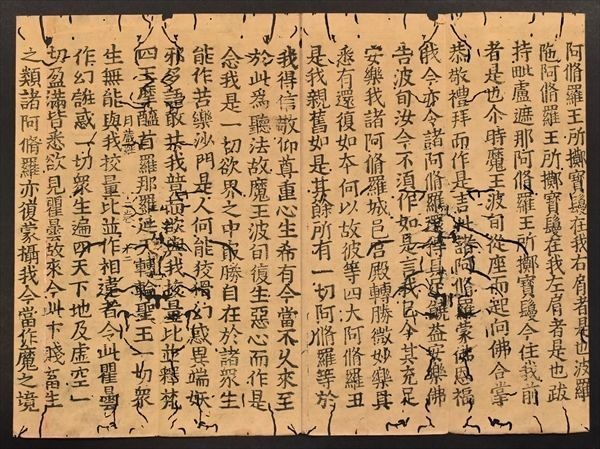 阿脩羅王所擲寶鬘在我右肩者是也波羅
陁阿脩羅王所擲寶鬘在我左肩者是也跋
持毗盧遮那阿脩羅王所擲寶鬘今住我前
者是也尒時魔王波旬從座而起向佛合掌
恭敬禮拜而作是言此諸阿脩羅蒙佛恩福
我今亦令諸阿脩羅還得具足饒益安樂佛
告波旬汝今不須作如是言我已令其充足
安樂我諸阿脩羅城邑宮殿轉勝微妙樂具
悉有還復如本何以故彼等四大阿脩羅王
是我親舊如是其餘所有一切阿脩羅等於
我得信敬仰尊重心生希有今當不久來至
於此爲聽法故魔王波旬復生惡心而作是
念我是一切欲界之中最勝自在於諸衆生
能作苦樂沙門是人何能挍幻惑異端妖
邪多語敢共我欲與我挍量比並釋梵
四天王摩醯首羅那羅延天轉輪聖王一切衆
月藏經
生無能與我挍量比並作相違者今此瞿曇
作幻誑惑一切衆生遍四天下地及虛空一
切盈滿皆悉欲見瞿曇故來今此下賤畜生
之類諸阿脩羅亦復蒙攝我今當作魔之境